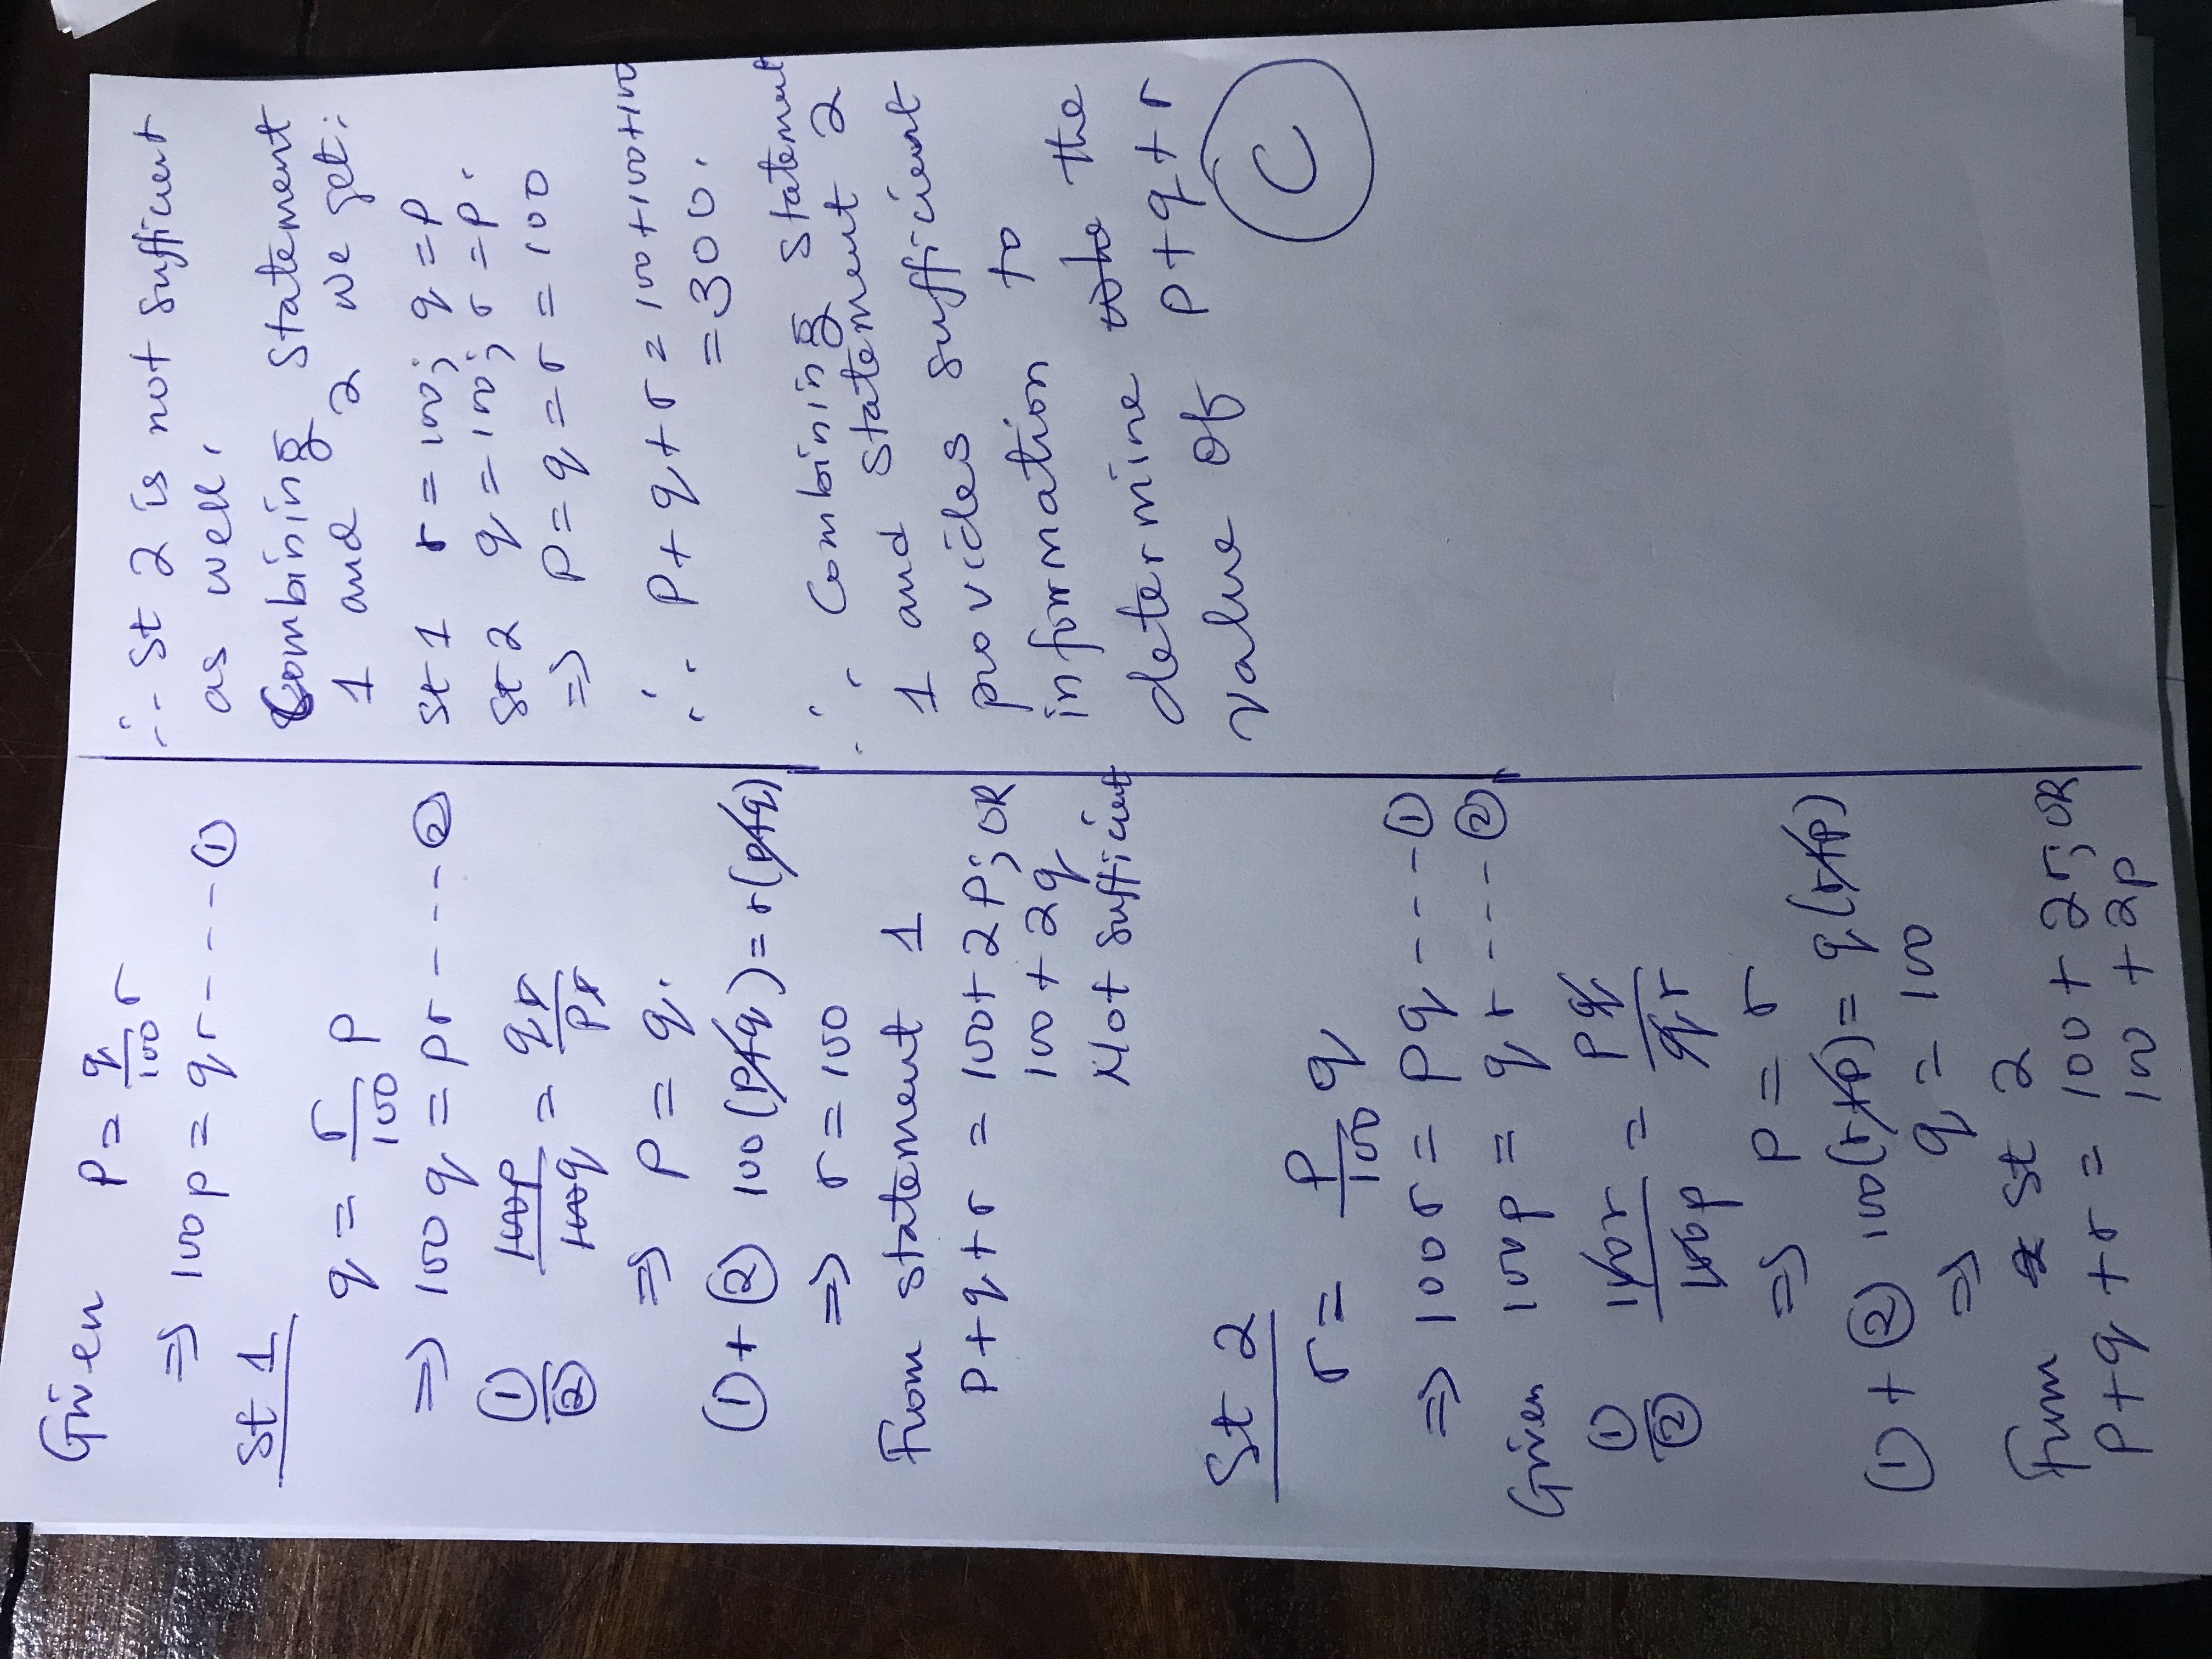 Given P = q/100 r
⇒ 100p = qr ---- ①
St 1
q = r/100 P
⇒ 100q = pr ---- ②
①/② 100p/100q = qr/pr
⇒ p = q.
① + ② 100(p+q) = r(p+q)
⇒ r = 100
From statement 1
p+q+r = 100+2P; OR
100+2q
Not sufficient
St 2
r = P/100 q
⇒ 100r = Pq ---- ①
Given 100p = qr ---- ②
①/② 100r/100p = pq/qr
⇒ p = r
① + ② 100(r+p) = q(r+p)
⇒ q = 100
From St 2
P+q+r = 100+2r; OR
100+2p
∴ St 2 is not sufficient
as well.
Combining statement
1 and 2 we get:
St 1 r = 100; q = p
St 2 q = 100; r = p.
⇒ p = q = r = 100
∴ P+q+r = 100+100+100
= 300.
∴ Combining Statement
1 and statement 2
provides sufficient
information to
determine the the
value of p+q+r
C